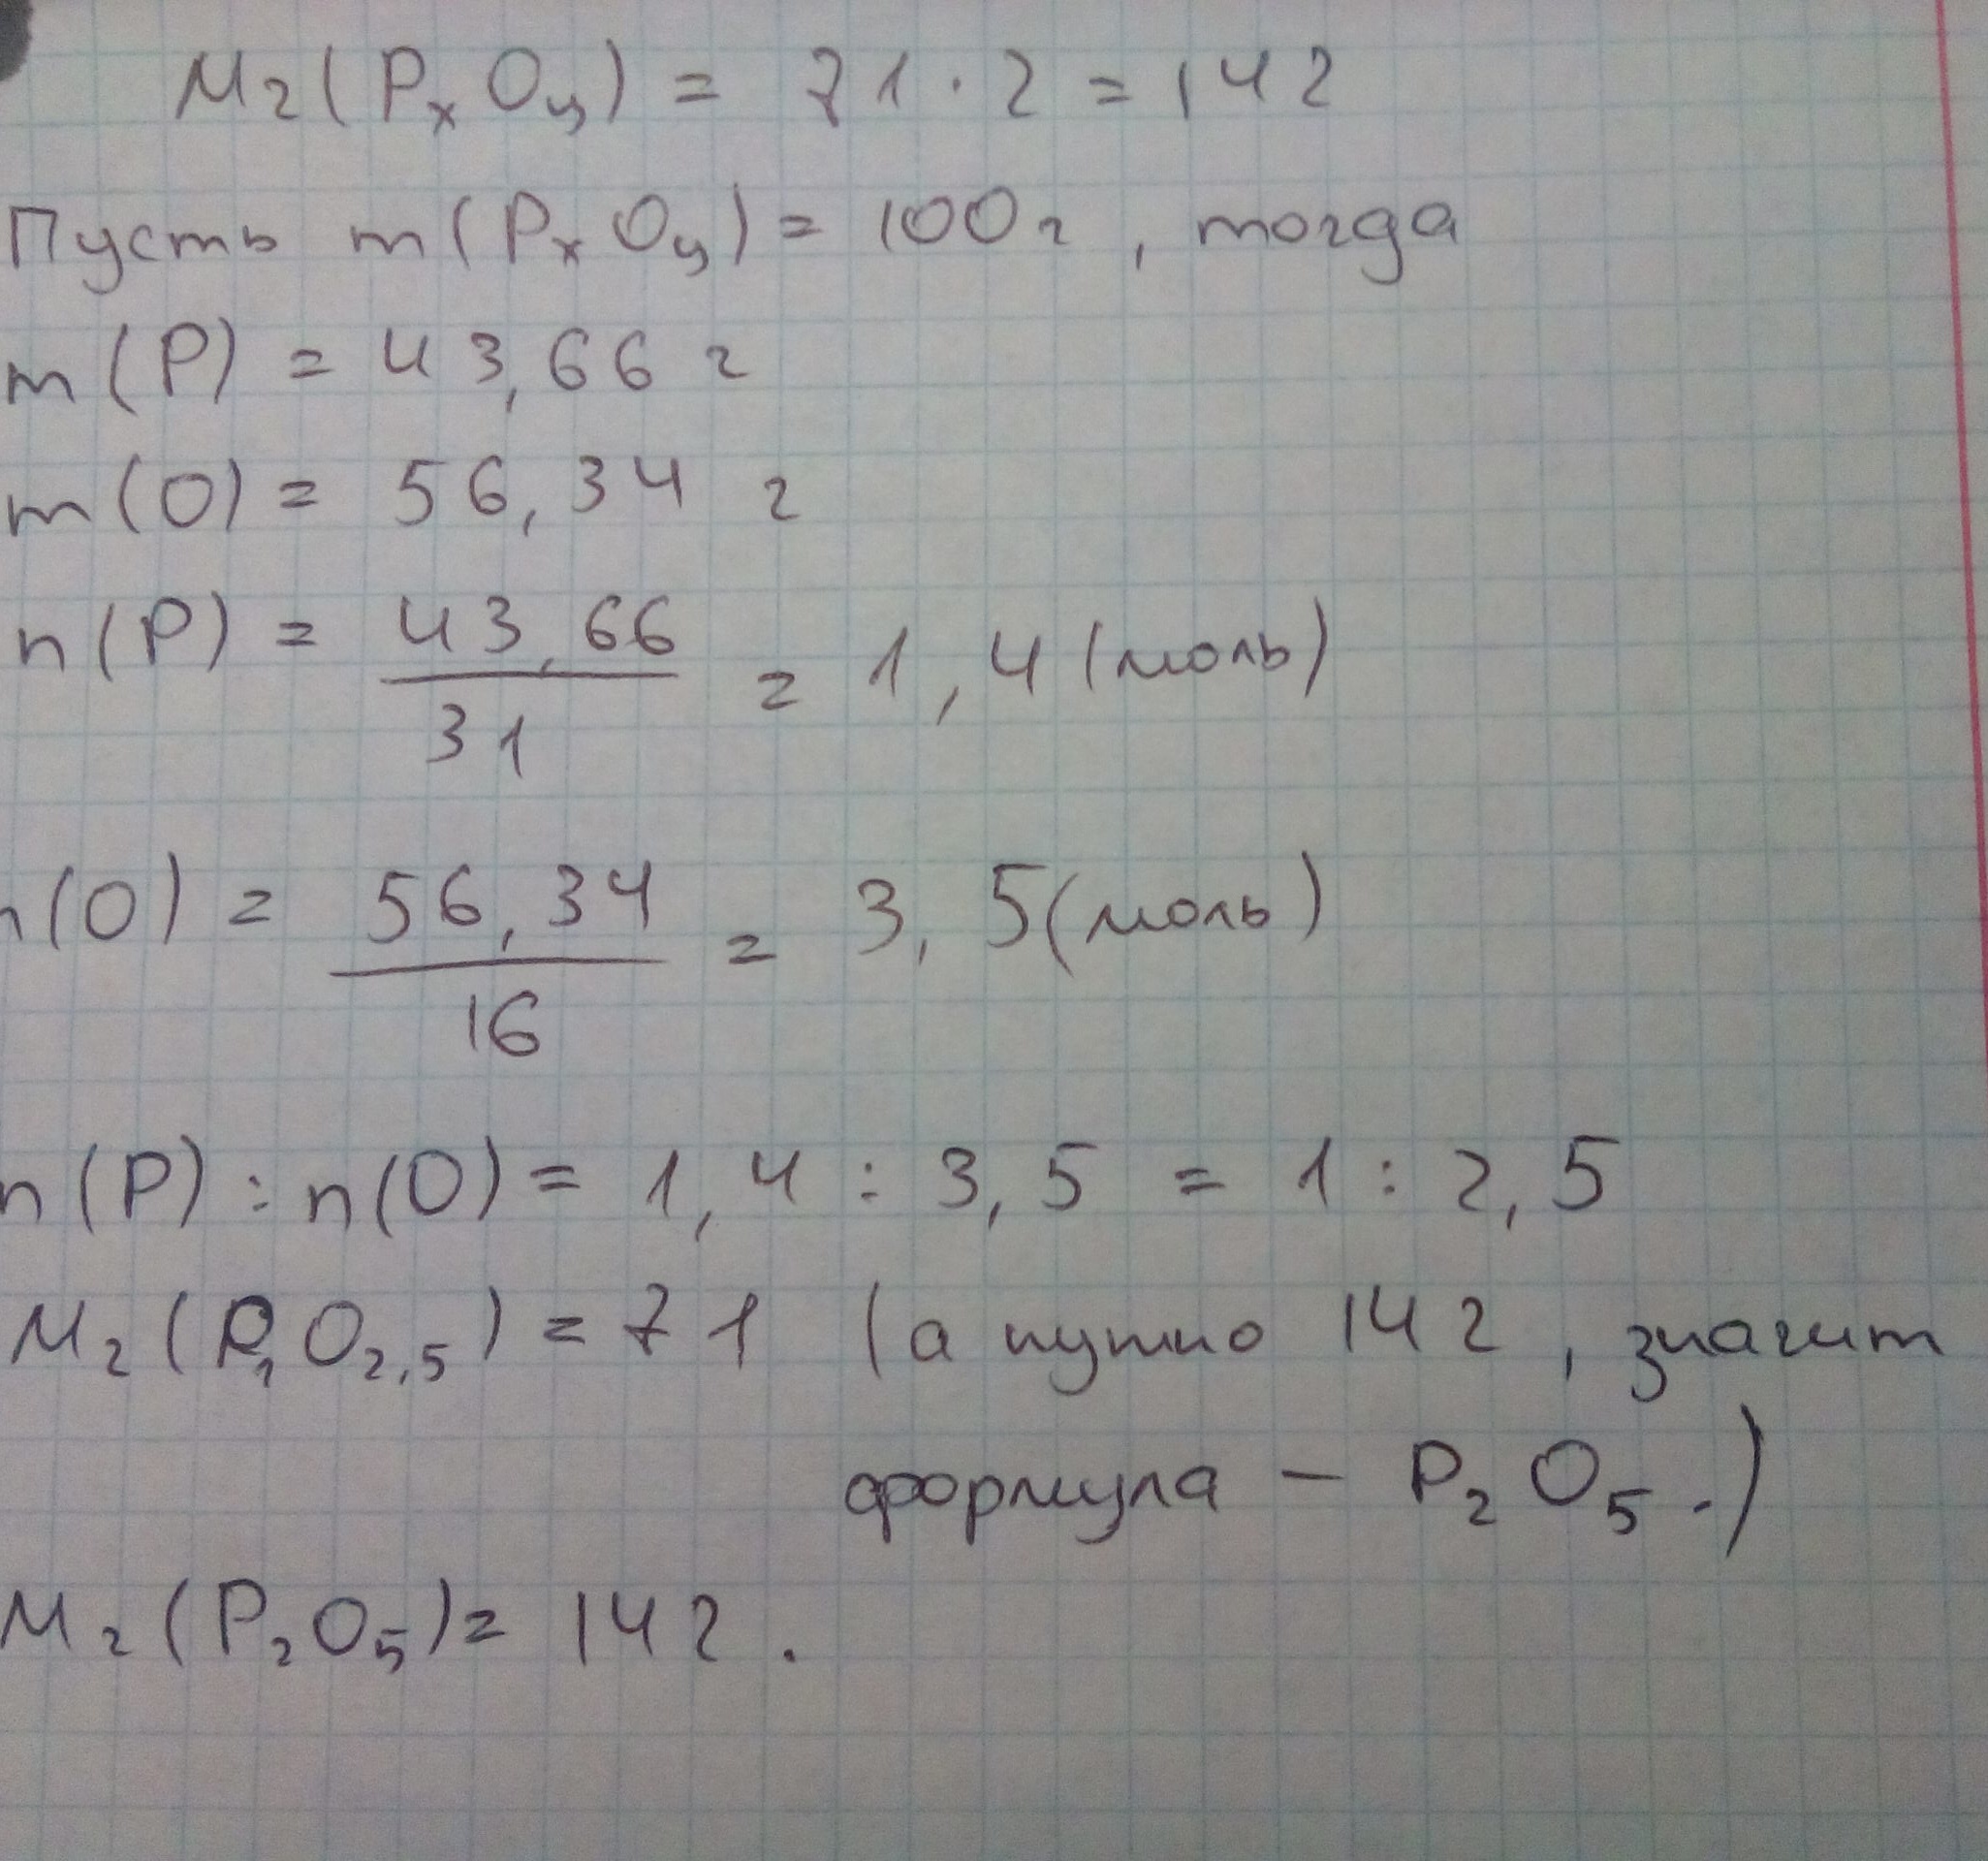 Mr(PxOy) = 71 · 2 = 142
Пусть m(PxOy) = 100г, тогда
m(P) = 43,66 г
m(O) = 56,34 г
n(P) = 43,66 / 31 = 1,4 (моль)
n(O) = 56,34 / 16 = 3,5 (моль)
n(P) : n(O) = 1,4 : 3,5 = 1 : 2,5
Mr(P1O2,5) = 71 (а нужно 142, значит
формула – P2O5.)
Mr(P2O5) = 142.